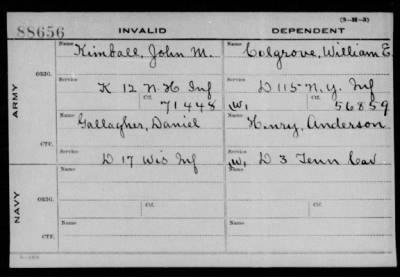 (3-H-3)
88656 INVALID DEPENDENT
ARMY
ORIG.
Name Kimball, John M. Name Colgrove, William E.
Service K 12 N.H Inf Service D 115 N.Y. Inf
Ctf. 71448 (W) Ctf. 56859
CTF.
Name Gallagher, Daniel Name Henry, Anderson
Service D 17 Wis Inf Service (W) D 3 Tenn Cav
NAVY
ORIG.
Name Name
Service Ctf. Service Ctf.
CTF.
Name Name